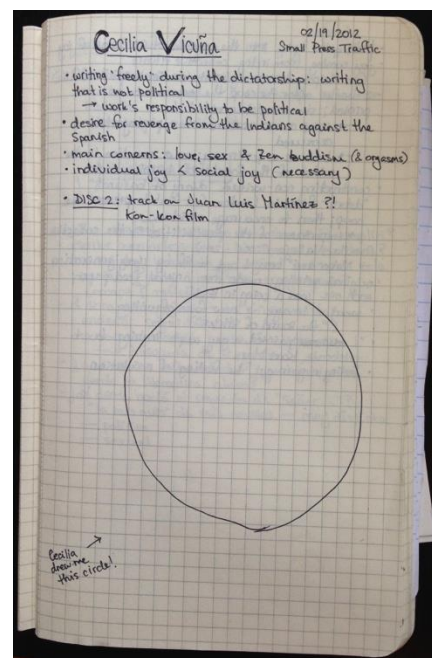 Cecilia Vicuña
02/19/2012
Small Press Traffic
• writing "freely" during the dictatorship: writing
that is not political
→ work's responsibility to be political
• desire for revenge from the Indians against the
Spanish
• main concerns: love, sex & Zen buddism (& orgasms)
• individual joy < social joy (necessary)
• DISC 2: track on Juan Luis Martínez ?!
Kon-Kon film
Cecilia
drew me
this circle!